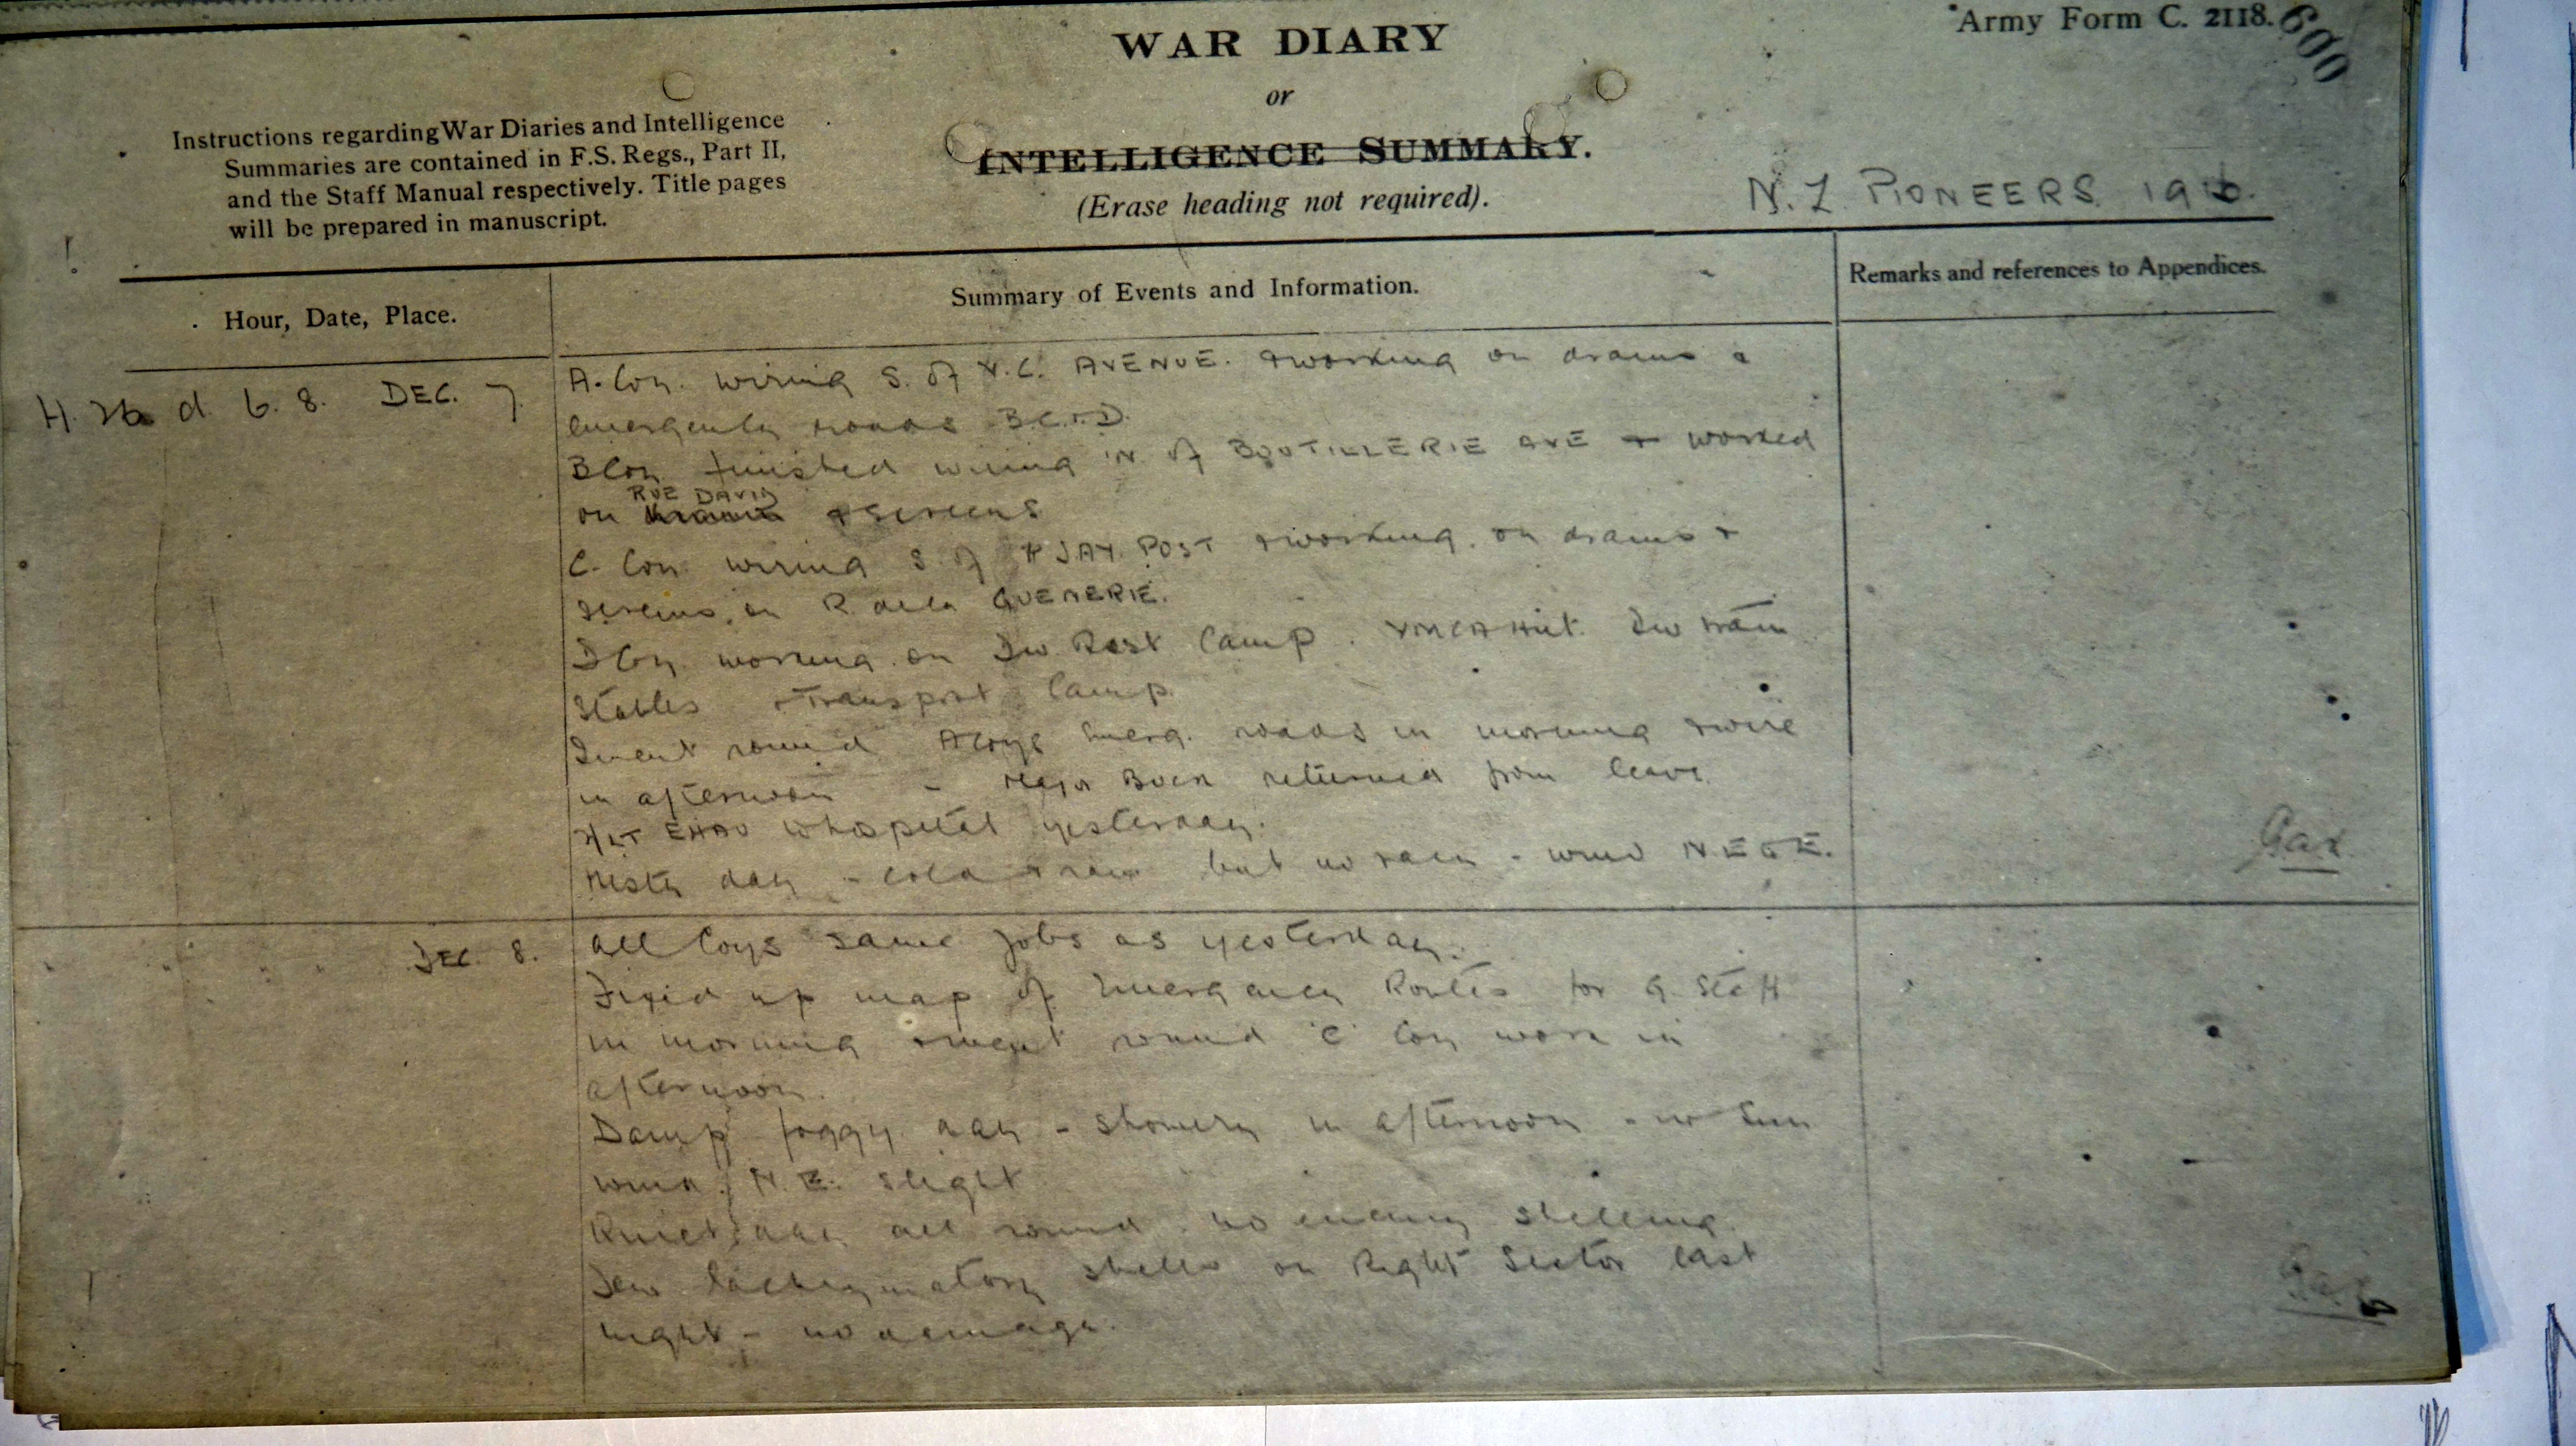 Army Form C. 2118.
600
WAR DIARY
or
INTELLIGENCE SUMMARY.
(Erase heading not required).
Instructions regarding War Diaries and Intelligence
Summaries are contained in F.S. Regs., Part II,
and the Staff Manual respectively. Title pages
will be prepared in manuscript.
N. Z. PIONEERS 1916.
Hour, Date, Place.
Summary of Events and Information.
Remarks and references to Appendices.
H. 26 d. 6. 8. DEC. 7
A. Coy. wiring S. of V.C. AVENUE. & working on drains &
emergency roads B.C. & D.
B Coy finished wiring N. of BOUTILLERIE AVE & worked
on RUE DAVID & screens
C. Coy wiring S of JAY POST & working on drains &
screens on R. de la
D Coy working on Div Rest Camp. YMCA Hut. Div train
stables & Transport Camp.
I went round A Coys emerg. roads in morning & wire
in afternoon - Major Buck returned from leave
to hospital yesterday.
Misty day - cold & raw but no rain - wind N.E & E.
DEC 8.
All Coys same jobs as yesterday.
Fixed up map of Emergency Routes for G. Staff
in morning & went round 'C' Coy work in
afternoon.
Damp foggy day - showery in afternoon - no sun
wind N.E. slight
Quiet day all round. no enemy shelling.
Few lachrymatory shells on Right Sector last
night - no damage.